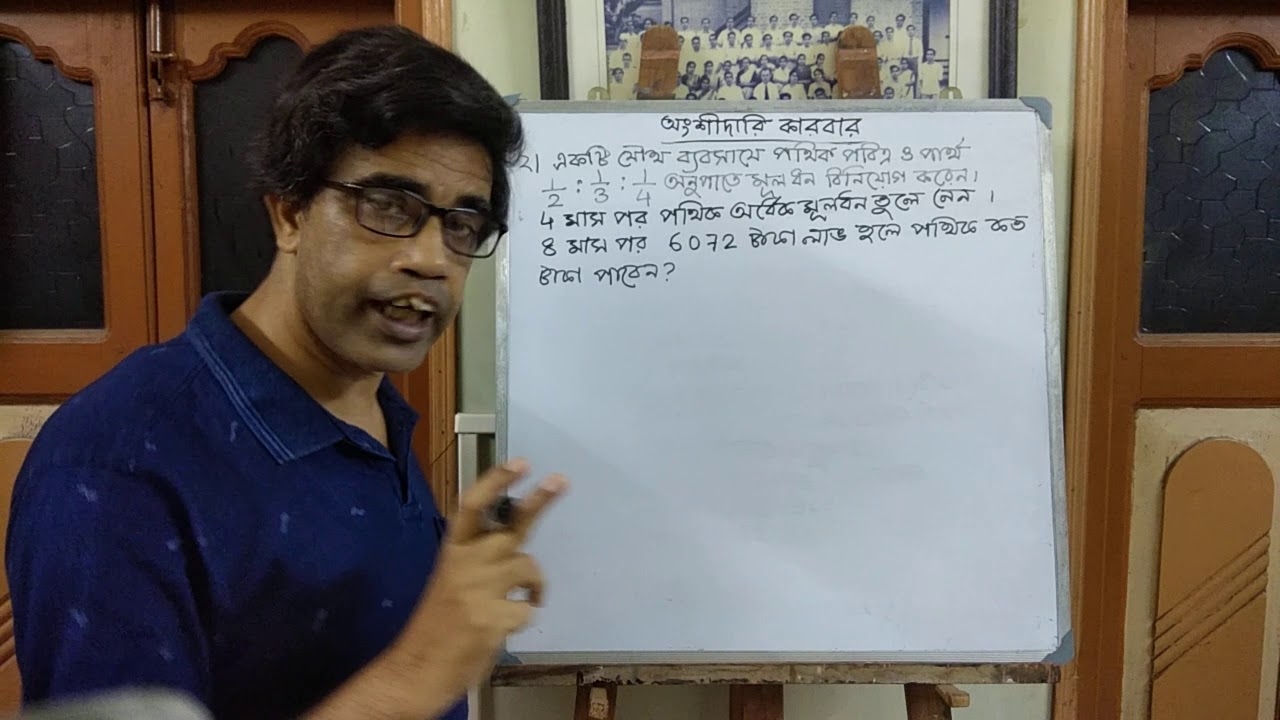 অংশীদারি কারবার
২। একটি যৌথ ব্যবসায়ে পথিক পবিত্র ও পার্থ
1/2 : 1/3 : 1/4 অনুপাতে মূলধন বিনিয়োগ করেন।
4 মাস পর পথিক অর্ধেক মূলধন তুলে নেন ।
8 মাস পর 6072 টাকা লাভ হলে পথিক কত
টাকা পাবেন?